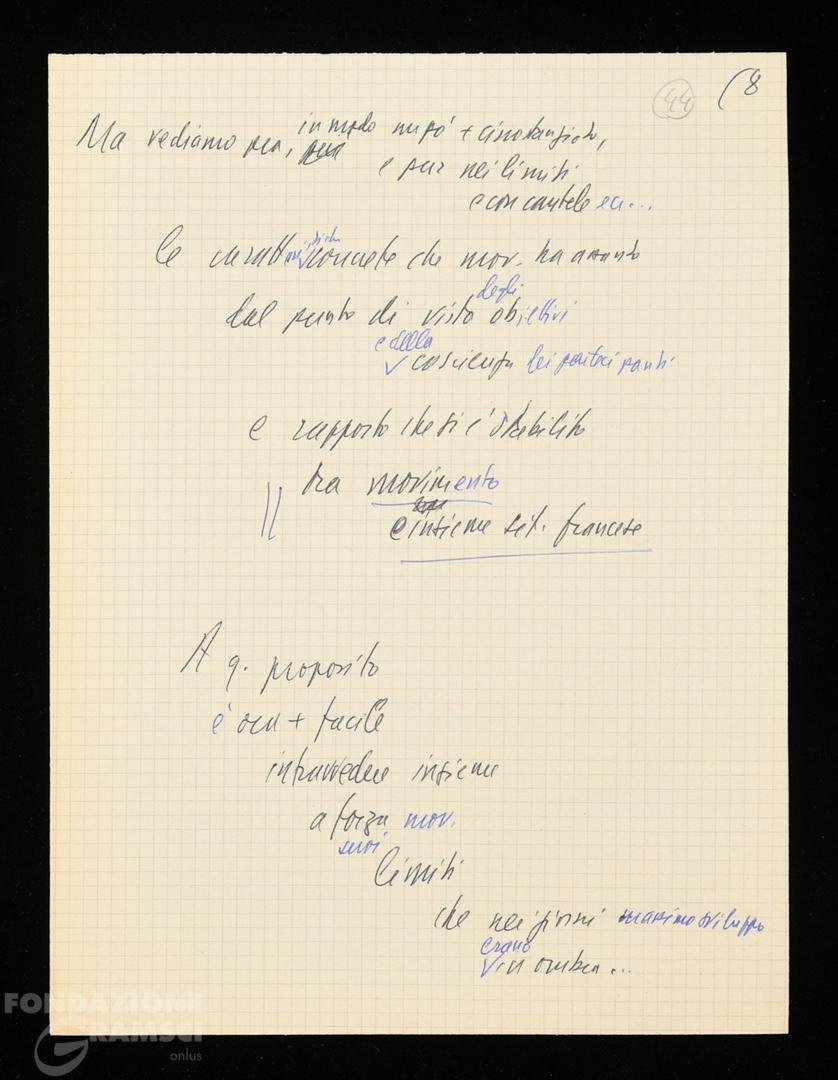 44 (8
Ma vediamo ora, in modo un po' + circostanziato,
e pur nei limiti
e con cautele ecc...
le caratteristiche concrete che mov. ha assunto
dal punto di vista degli obiettivi
e della coscienza dei partecipanti
e rapporto che si è stabilito
tra movimento
e insieme sit. francese
A q. proposito
è ora + facile
intravvedere insieme
a forza mov.
suoi limiti
che nei giorni massimo sviluppo
erano in ombra...
FONDAZIONE
GRAMSCI
onlus